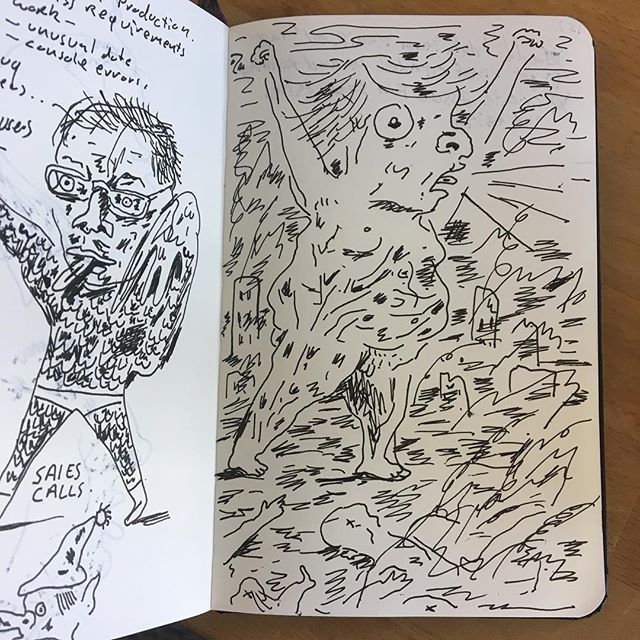 production.
requirements
work-
- unusual date
- console errors.
users
SALES
CALLS.